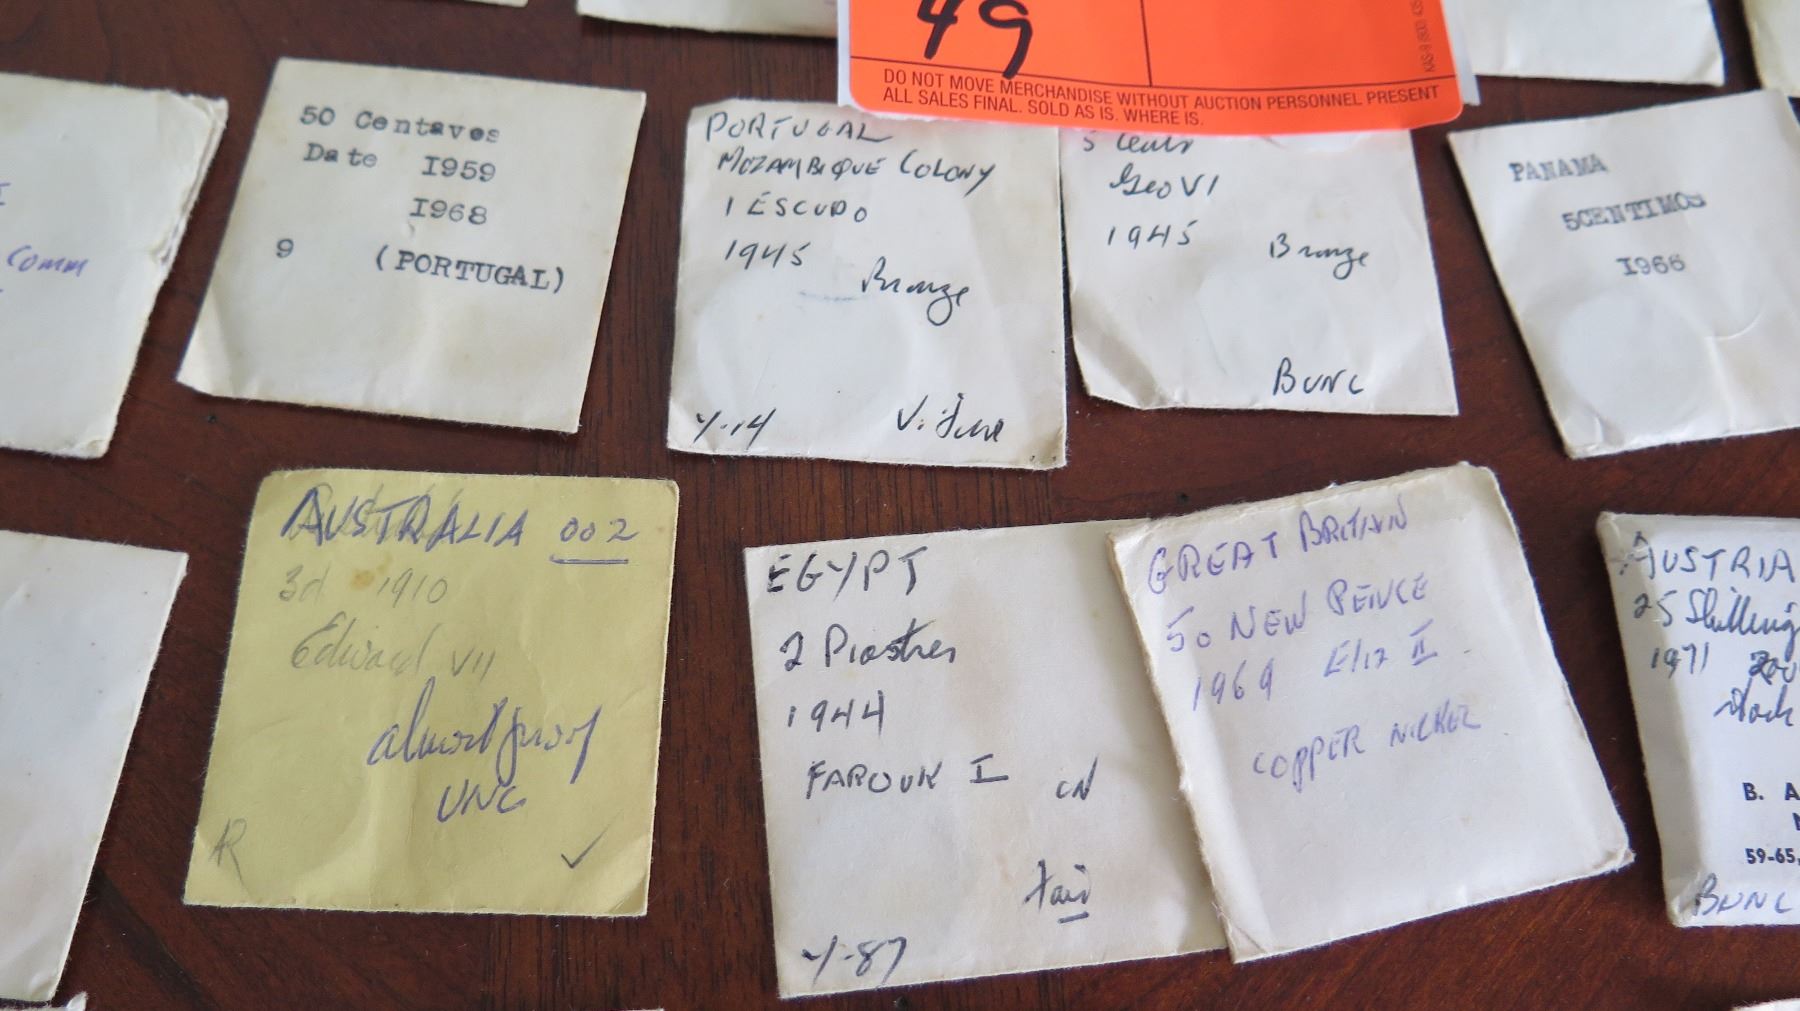 49
DO NOT MOVE MERCHANDISE WITHOUT AUCTION PERSONNEL PRESENT
ALL SALES FINAL. SOLD AS IS. WHERE IS.
I
Comm
50 Centaves
Date I959
I968
9 (PORTUGAL)
PORTUGAL
MOZAMBIQUE COLONY
1 ESCUDO
1945
Bronze
Y-14 V. Fine
5 Cents
Geo VI
1945
Bronze
BUNC
PANAMA
5CENTIMOS
I966
AUSTRALIA 002
3d 1910
Edward VII
almost proof
UNC
AR
EGYPT
2 Piastres
1944
FAROUK I CN
Fair
Y-87
GREAT BRITAIN
50 NEW PENCE
1969 Eliz II
COPPER NICKEL
AUSTRIA
25 Shilling
1971
B. A
59-65,
BUNC